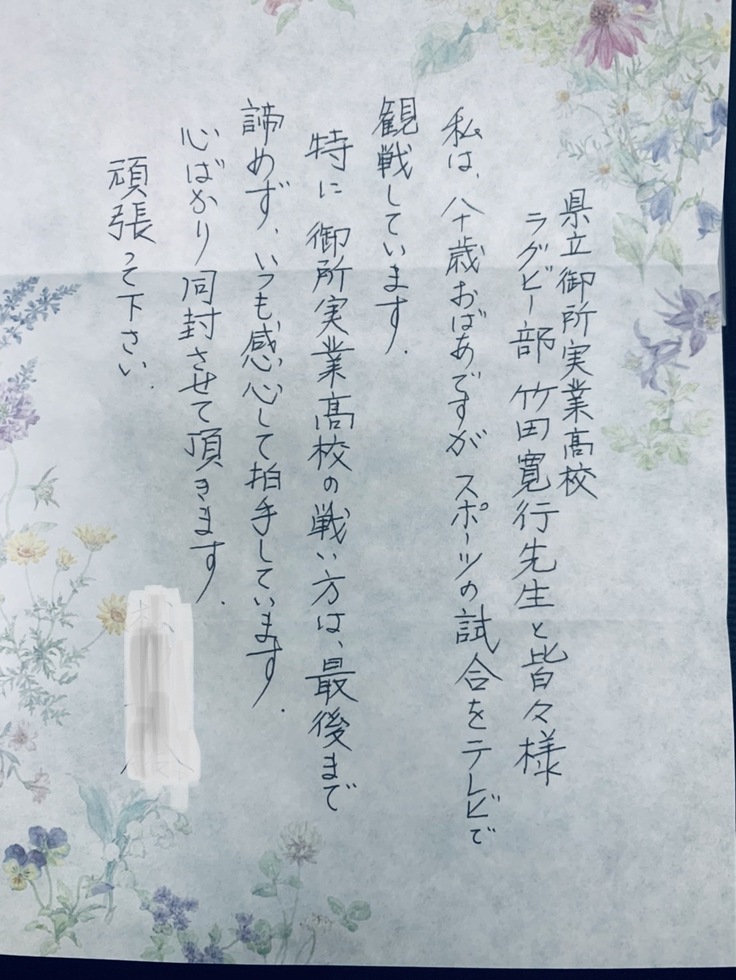 県立御所実業高校
ラグビー部 竹田寛行先生と皆々様
私は、八十歳おばあですが スポーツの試合をテレビで
観戦しています.
特に 御所実業高校の戦い方は、最後まで
諦めず、いつも感心して拍手しています.
心ばかり同封させて頂きます.
頑張って下さい.